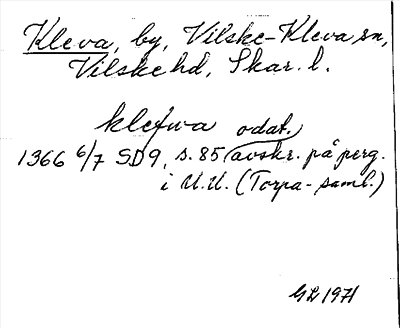 Kleva, by, Vilske-Kleva sn,
Vilske hd, Skar. l.
klefwa odat.
1366 6/7 SD9, s. 85 (avskr. på perg.
i U.U. (Torpa-saml.)
GL 1971